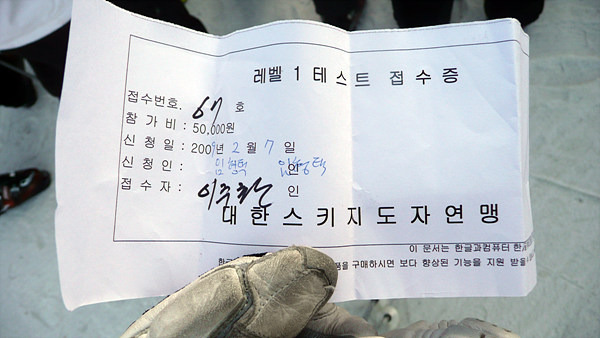 레벨 1 테스트 접수증
접수번호. 67 호
참 가 비 : 50,000원
신 청 일 : 2009년 2 월 7 일
신 청 인 : 임형택 인 임형택
접 수 자 : 인
대 한 스 키 지 도 자 연 맹
이 문서는 한글과컴퓨터 한
한글 품을 구매하시면 보다 향상된 기능을 지원 받을